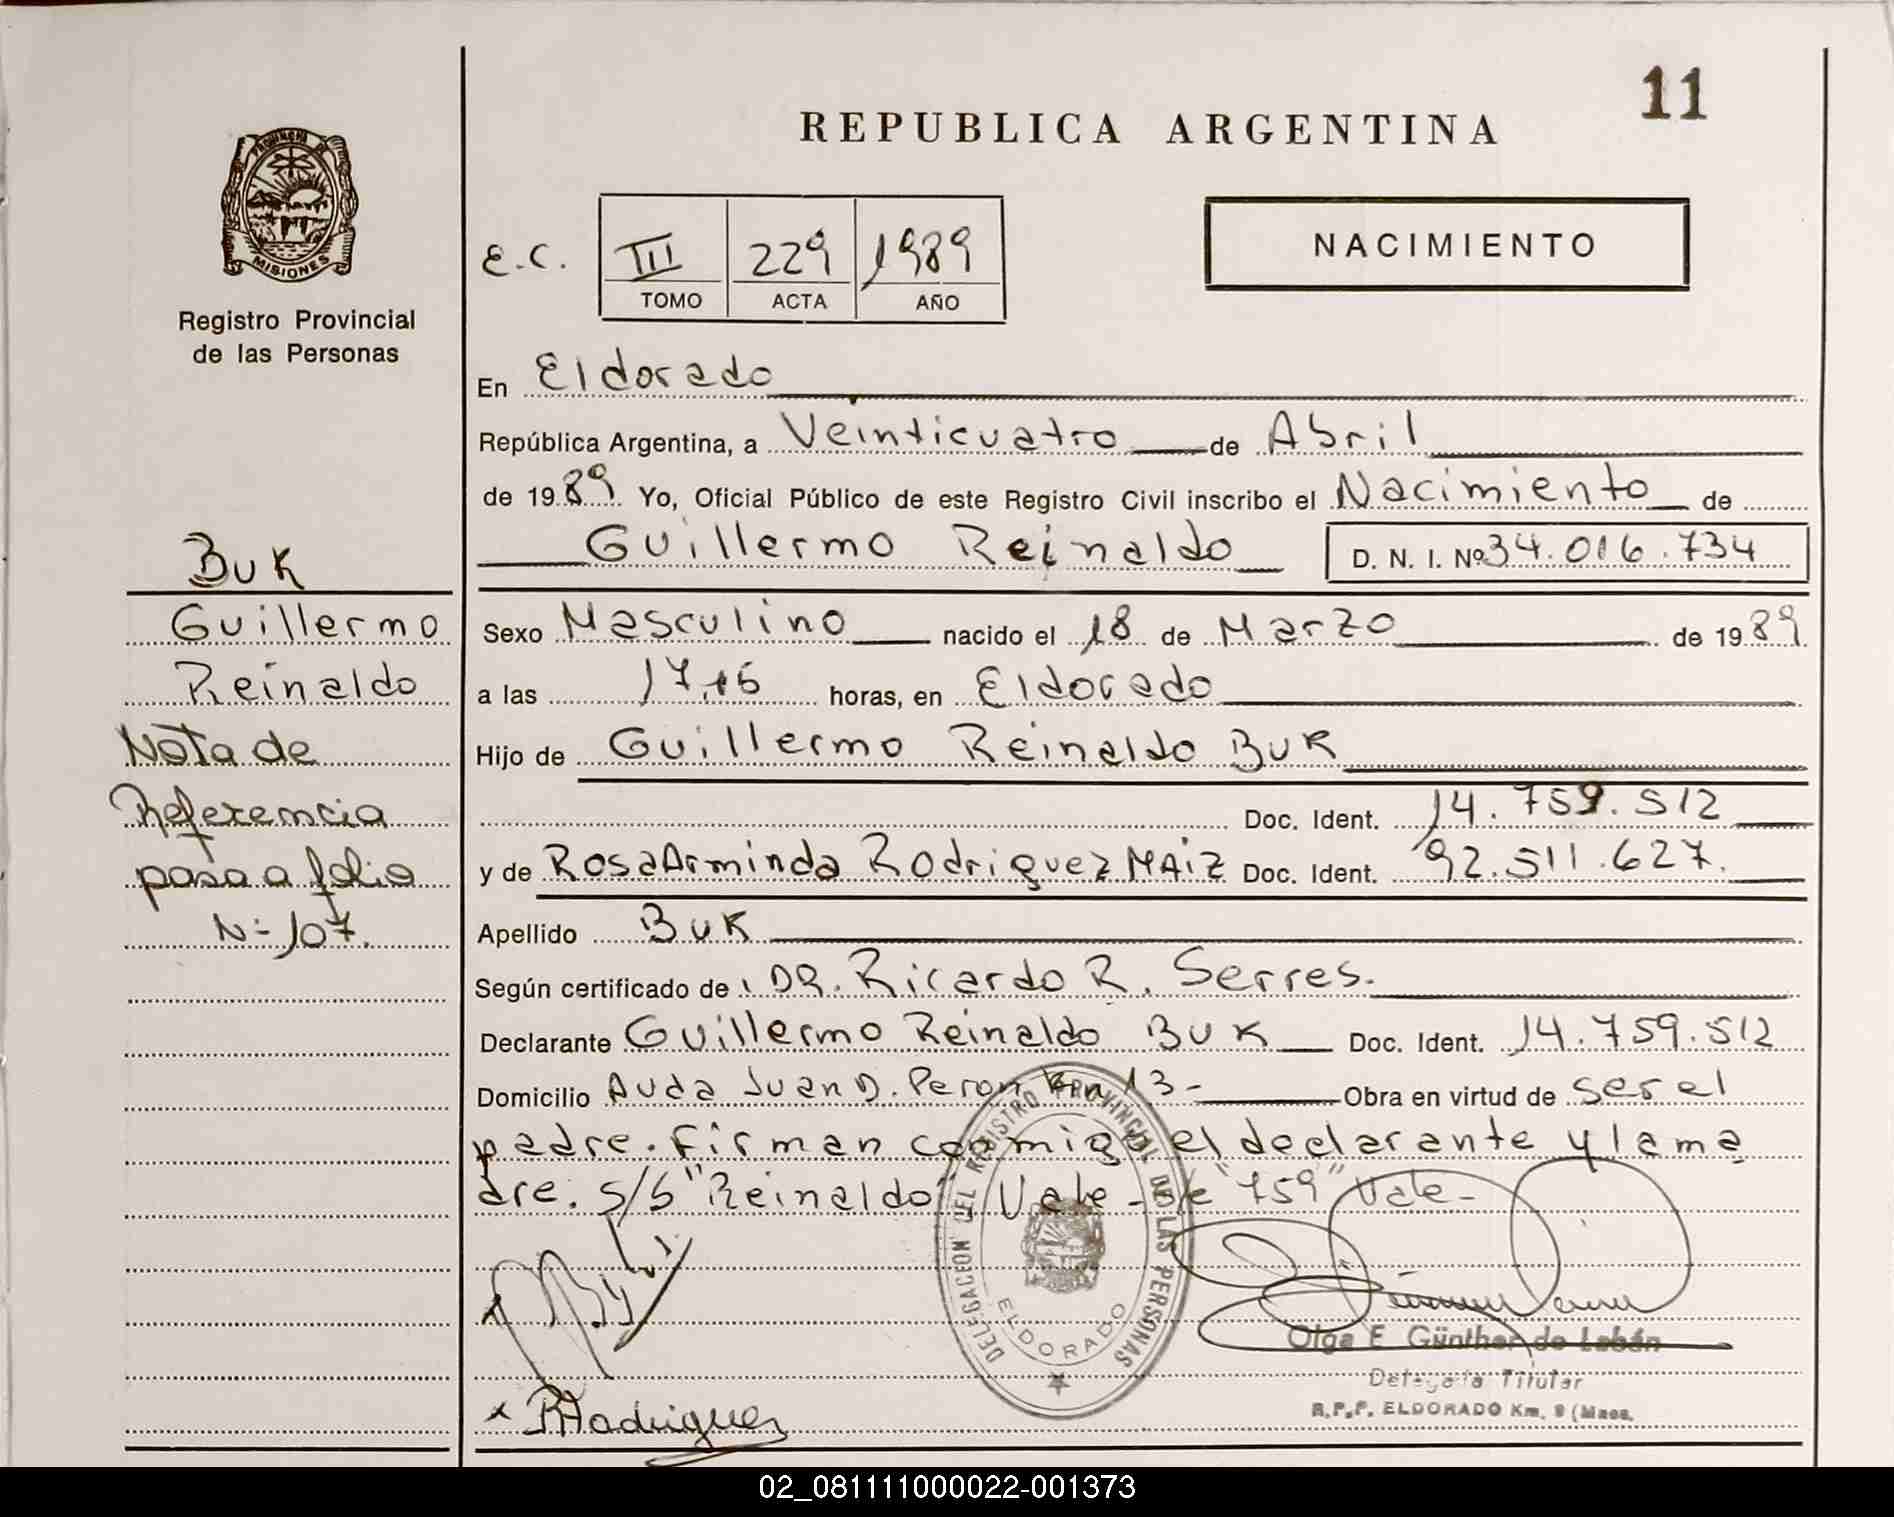 11
REPUBLICA ARGENTINA
PROVINCIA DE
MISIONES
Registro Provincial
de las Personas
E.C.
III 229 1989
TOMO ACTA AÑO
NACIMIENTO
En Eldorado
República Argentina, a Veinticuatro de Abril
de 1989 Yo, Oficial Público de este Registro Civil inscribo el Nacimiento de
Guillermo Reinaldo D. N. I. Nº 34.016.734
Sexo Masculino nacido el 18 de Marzo de 1989
a las 17,15 horas, en Eldorado
Hijo de Guillermo Reinaldo Buk
Doc. Ident. 14.759.512
y de Rosa Arminda Rodriguez MAiz Doc. Ident. 92.511.627.
Apellido Buk
Según certificado de DR. Ricardo R. Serres.
Declarante Guillermo Reinaldo Buk Doc. Ident. 14.759.512
Domicilio Avda Juan D. Peron Km 13- Obra en virtud de ser el
padre. Firman conmigo el declarante y la ma
dre. S/b "Reinaldo" Vale - s/e "759" Vale-
Buk
Guillermo
Reinaldo
Nota de
Referencia
pasa a folio
Nº 107.
DELEGACION DEL REGISTRO PROVINCIAL DE LAS PERSONAS
ELDORADO
Olga E. Günther de Labán
Delegada Titular
R.P.P. ELDORADO Km. 9 (Mnes.
x Rodriguez
02_081111000022-001373